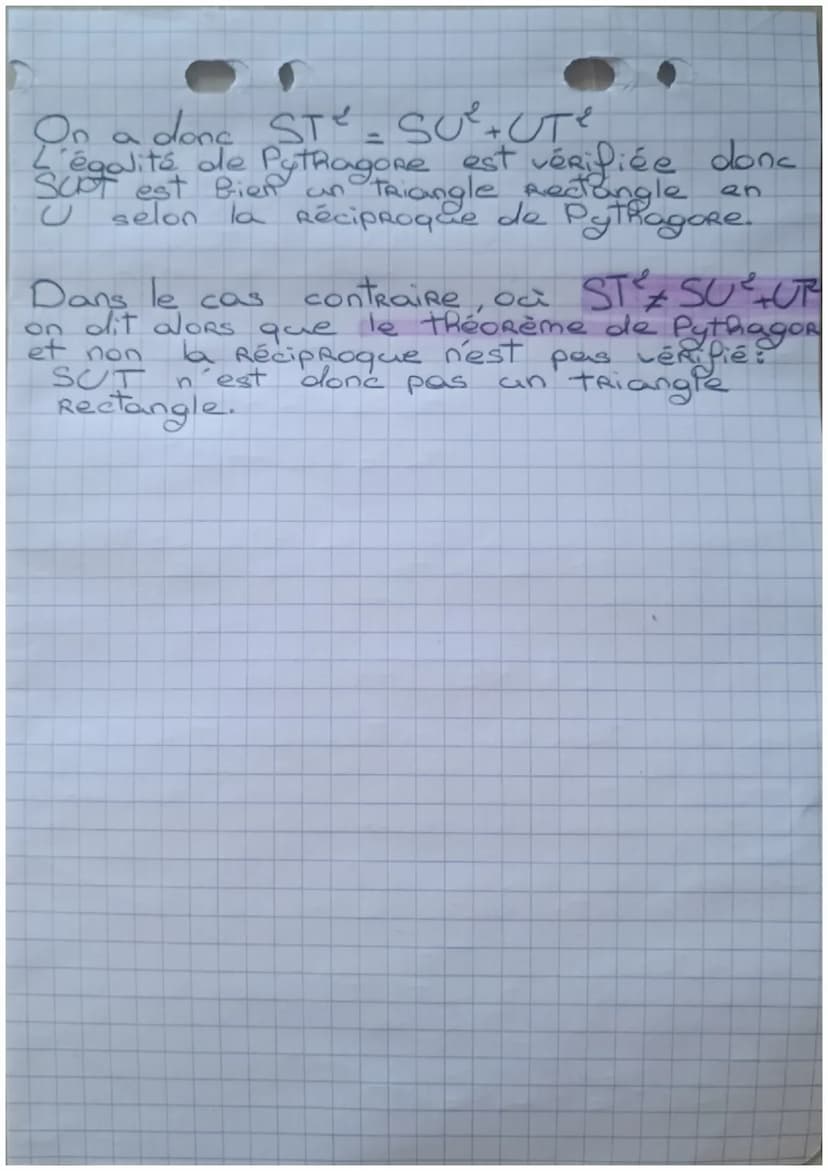 On a donc ST² = SU² + UT²
L'égalité de Pythagore est vérifiée donc
SUT est bien un triangle rectangle en
U selon la réciproque de Pythagore.
Dans le cas contraire, où ST² ≠ SU² + UT²
on dit alors que le théorème de Pythagor
et non la réciproque n'est pas vérifié :
SUT n'est donc pas un triangle
rectangle.